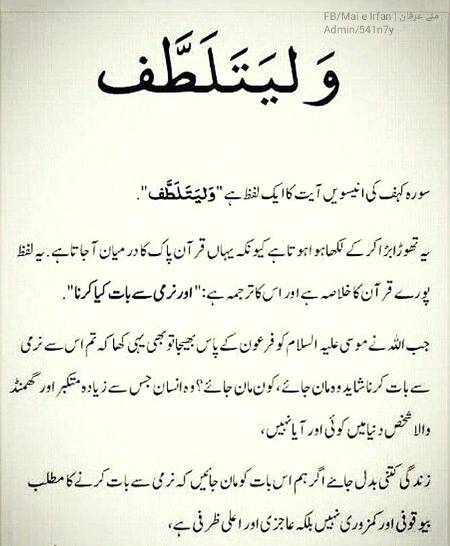 FB/Mai e Irfan | مئے عرفان
Admin/541n7y
وَلْيَتَلَطَّف
سورہ کہف کی انیسویں آیت کا ایک لفظ ہے "وَلیَتَلَطَّف".
یہ تھوڑا بڑا کر کے لکھا ہوا ہوتا ہے کیونکہ یہاں قرآن پاک کا درمیان آجاتا ہے. یہ لفظ
پورے قرآن کا خلاصہ ہے اور اس کا ترجمہ ہے: "اور نرمی سے بات کیا کرنا".
جب اللہ نے موسی علیہ السلام کو فرعون کے پاس بھیجا تو بھی یہی کہا کہ تم اس سے نرمی
سے بات کرنا شاید وہ مان جائے، کون مان جائے؟ وہ انسان جس سے زیادہ متکبر اور گھمنڈ
والا شخص دنیا میں کوئی اور آیا نہیں،
زندگی کتنی بدل جائے اگر ہم اس بات کو مان جائیں کہ نرمی سے بات کرنے کا مطلب
بیوقوفی اور کمزوری نہیں بلکہ عاجزی اور اعلی ظرفی ہے،